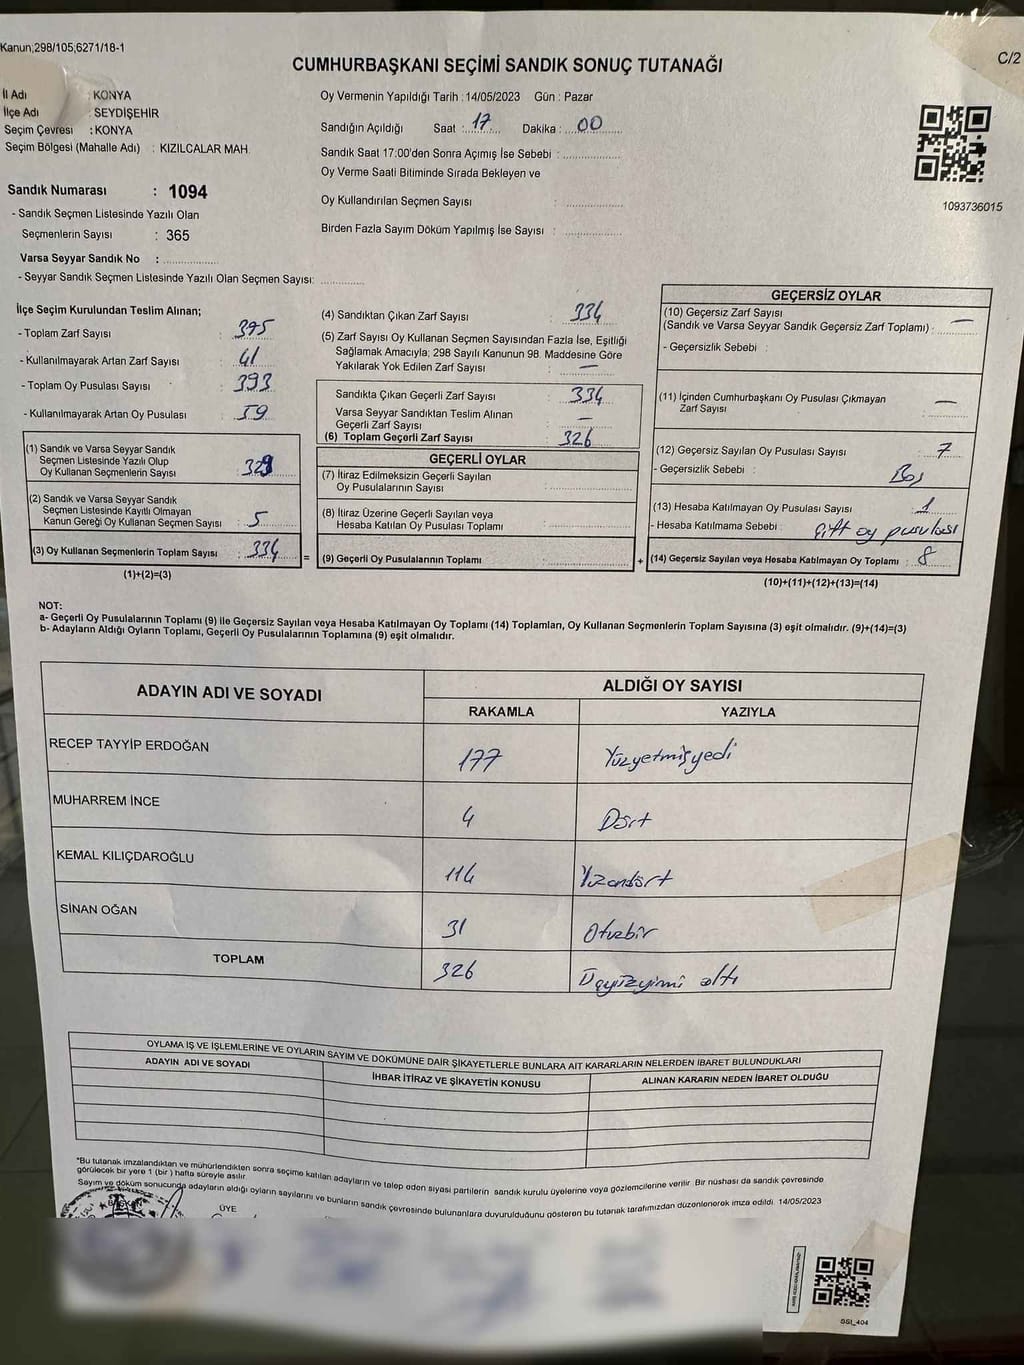 Kanun;298/105,6271/18-1
C/2
CUMHURBAŞKANI SEÇİMİ SANDIK SONUÇ TUTANAĞI
İl Adı : KONYA
İlçe Adı : SEYDİŞEHİR
Seçim Çevresi : KONYA
Seçim Bölgesi (Mahalle Adı) : KIZILCALAR MAH.
Oy Vermenin Yapıldığı Tarih : 14/05/2023 Gün : Pazar
Sandığın Açıldığı Saat : 17 Dakika : 00
Sandık Saat 17:00'den Sonra Açımış İse Sebebi :
Oy Verme Saati Bitiminde Sırada Bekleyen ve
Oy Kullandırılan Seçmen Sayısı :
Birden Fazla Sayım Döküm Yapılmış İse Sayısı :
1093736015
Sandık Numarası : 1094
- Sandık Seçmen Listesinde Yazılı Olan
Seçmenlerin Sayısı : 365
Varsa Seyyar Sandık No :
- Seyyar Sandık Seçmen Listesinde Yazılı Olan Seçmen Sayısı:
İlçe Seçim Kurulundan Teslim Alınan;
- Toplam Zarf Sayısı : 375
- Kullanılmayarak Artan Zarf Sayısı : 41
- Toplam Oy Pusulası Sayısı : 393
- Kullanılmayarak Artan Oy Pusulası : 59
(1) Sandık ve Varsa Seyyar Sandık
Seçmen Listesinde Yazılı Olup
Oy Kullanan Seçmenlerin Sayısı : 329
(2) Sandık ve Varsa Seyyar Sandık
Seçmen Listesinde Kayıtlı Olmayan
Kanun Gereği Oy Kullanan Seçmen Sayısı : 5
(3) Oy Kullanan Seçmenlerin Toplam Sayısı : 334
(1)+(2)=(3)
(4) Sandıktan Çıkan Zarf Sayısı : 334
(5) Zarf Sayısı Oy Kullanan Seçmen Sayısından Fazla İse, Eşitliği
Sağlamak Amacıyla; 298 Sayılı Kanunun 98. Maddesine Göre
Yakılarak Yok Edilen Zarf Sayısı : —
Sandıkta Çıkan Geçerli Zarf Sayısı : 334
Varsa Seyyar Sandıktan Teslim Alınan
Geçerli Zarf Sayısı : —
(6) Toplam Geçerli Zarf Sayısı : 326
GEÇERLİ OYLAR
(7) İtiraz Edilmeksizin Geçerli Sayılan
Oy Pusulalarının Sayısı :
(8) İtiraz Üzerine Geçerli Sayılan veya
Hesaba Katılan Oy Pusulası Toplamı :
= (9) Geçerli Oy Pusulalarının Toplamı :
GEÇERSİZ OYLAR
(10) Geçersiz Zarf Sayısı
(Sandık ve Varsa Seyyar Sandık Geçersiz Zarf Toplamı) : —
- Geçersizlik Sebebi :
(11) İçinden Cumhurbaşkanı Oy Pusulası Çıkmayan
Zarf Sayısı : —
(12) Geçersiz Sayılan Oy Pusulası Sayısı : 7
- Geçersizlik Sebebi : Boş
(13) Hesaba Katılmayan Oy Pusulası Sayısı : 1
- Hesaba Katılmama Sebebi : Çift oy pusulası
+ (14) Geçersiz Sayılan veya Hesaba Katılmayan Oy Toplamı : 8
(10)+(11)+(12)+(13)=(14)
NOT:
a- Geçerli Oy Pusulalarının Toplamı (9) ile Geçersiz Sayılan veya Hesaba Katılmayan Oy Toplamı (14) Toplamları, Oy Kullanan Seçmenlerin Toplam Sayısına (3) eşit olmalıdır. (9)+(14)=(3)
b- Adayların Aldığı Oyların Toplamı, Geçerli Oy Pusulalarının Toplamına (9) eşit olmalıdır.
ADAYIN ADI VE SOYADI
ALDIĞI OY SAYISI
RAKAMLA YAZIYLA
RECEP TAYYİP ERDOĞAN 177 Yüzyetmişyedi
MUHARREM İNCE 4 Dört
KEMAL KILIÇDAROĞLU 114 Yüzondört
SİNAN OĞAN 31 Otuzbir
TOPLAM 326 Üçyüzyirmi altı
OYLAMA İŞ VE İŞLEMLERİNE VE OYLARIN SAYIM VE DÖKÜMÜNE DAİR ŞİKAYETLERLE BUNLARA AİT KARARLARIN NELERDEN İBARET BULUNDUKLARI
ADAYIN ADI VE SOYADI İHBAR İTİRAZ VE ŞİKAYETİN KONUSU ALINAN KARARIN NEDEN İBARET OLDUĞU
*Bu tutanak imzalandıktan ve mühürlendikten sonra seçime katılan adayların ve talep eden siyasi partilerin sandık kurulu üyelerine veya gözlemcilerine verilir. Bir nüshası da sandık çevresinde
görülecek bir yere 1 (bir) hafta süreyle asılır.
Sayım ve döküm sonucunda adayların aldığı oyların sayılarını ve bunların sandık çevresinde bulunanlara duyurulduğunu gösteren bu tutanak tarafımızdan düzenlenerek imza edildi. 14/05/2023
BAŞKAN
ÜYE
SSI_404